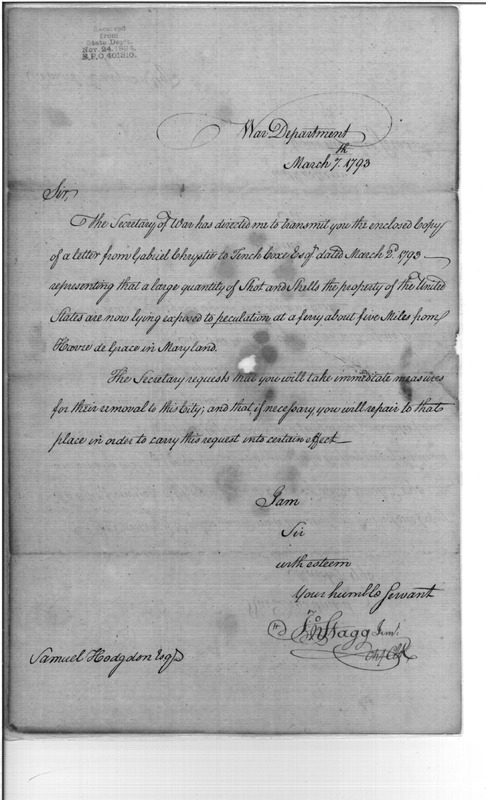 Received
from
State Dept.
Nov. 24, 1894.
R.P.O. 401310.
War Department
March 7.th 1793
Sir,
The Secretary of War has directed me to transmit you the enclosed Copy
of a letter from Gabriel Chrystie to Tench Coxe Esqr. dated March 2d. 1793 —
representing that a large quantity of Shot and Shells the property of the United
States are now lying exposed to peculation at a ferry about five Miles from
Havre de Grace in Maryland.
The Secretary requests that you will take immediate measures
for their removal to this City; and that, if necessary you will repair to that
place in order to carry this request into certain effect —
I am
Sir
with esteem
Your humble Servant
Jno Stagg Junr.
Chf Clk
Samuel Hodgdon Esqr